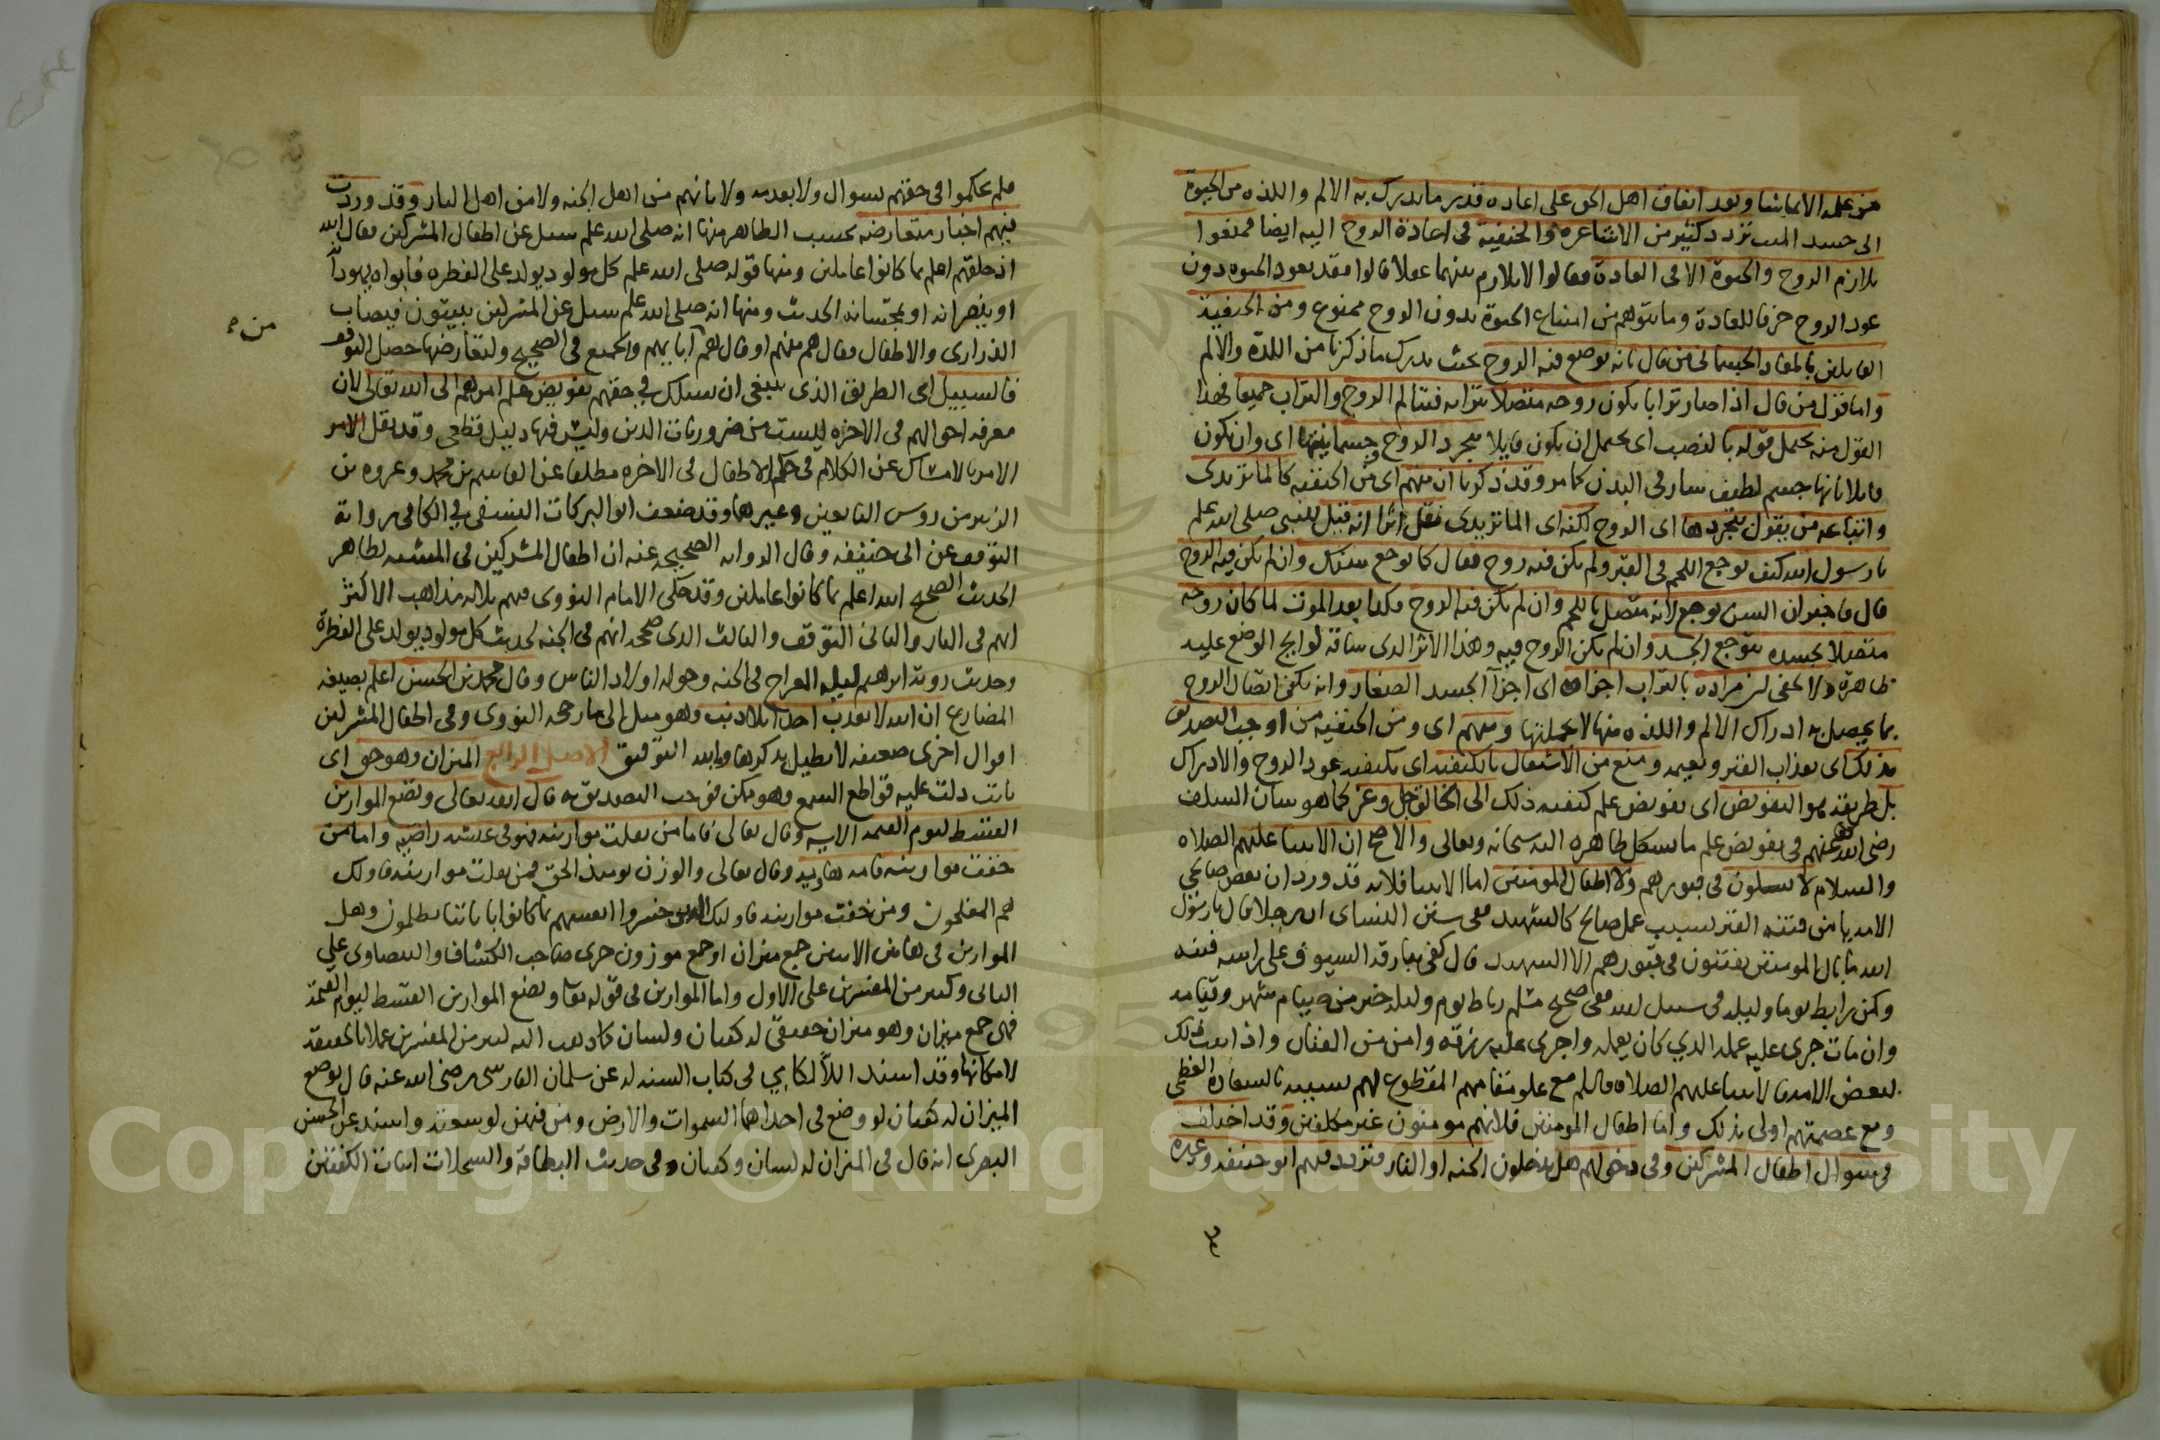 من علمه الا بما شا وبعد اتفاق اهل الحق على اعاده قدر ما يدرك به الالم واللذه من الحيوة
الى جسد الميت تردد كثير من الاشاعرة والحنفية في اعادة الروح اليه ايضا فمنعوا
تلازم الروح والحيوة الا في العادة فقالوا لا تلازم بينهما عقلا قالوا فقد تعود الحيوه دون
عود الروح خرقا للعادة وما يتوهم من امتناع الحيوة بدون الروح ممنوع ومن الحنفية
القايلين بالمعاد الجسماني من قال بانه توضع فيه الروح بحيث يدرك ما ذكرنا من اللذة والالم
واما قول من قال اذا صار ترابا يكون روحه متصلا بترابه فيتالم الروح والتراب جميعا فهذا
القول منه يحتمل قوله بالنصب اى يحتمل ان يكون قايلا بتجرد الروح وجسمانيتها اى وان يكون
قايلا بانها جسم لطيف سار في البدن كما مر وقد ذكرنا ان منهم اى من الحنفيه كالماتريدى
واتباعه من يقول بتجردها اى الروح لكنه اى الماتريدى نقل اثرا انه قيل للنبي صلى الله علم
يا رسول الله كيف توجع اللحم في القبر ولم يكن فيه روح فقال كما توجع سنك وان لم يكن فيه الروح
قال فاخبر ان السن توجع لانه متصل باللحم وان لم يكن فيه الروح فكذا بعد الموت لما كان روحه
متصلا بجسده يتوجع الجسد وان لم يكن الروح فيه وهذا الاثر الذى ساقه لوايح الوضع عليه
ظاهرة ولا يخفى ان مراده بالتراب اجزاوه اى اجزآ الجسد الصغار وانه يكفي اتصال الروح
بما يحصل به ادراك الالم واللذه منها لا بجملتها ومنهم اى ومن الحنفيه من اوجب التصديق
بذلك اى بعذاب القبر ونعيمه ومنع من الاشتغال بالكيفية اى بكيفيه عود الروح والادراك
بل طريقته هو التفويض اى تفويض علم كيفيه ذلك الى الخالق جل وعز كما هو شان السلف
رضى الله عنهم في تفويض علم ما يشكل ظاهره اليه سبحانه وتعالى والاصح ان الانبيا عليهم الصلاه
والسلام لا يسلون في قبورهم ولا اطفال المومنين اما الانبيا فلانه قد ورد ان بعض صالحي
الامه يامن فتنه القبر بسبب عمل صالح كالشهيد ففي سنن النساى ان رجلا قال يا رسول
الله ما بال المومنين يفتنون في قبورهم الا الشهيد قال كفى ببارقه السيوف على راسه فتنه
وكمن رابط يوما وليله في سبيل الله ففي صحيح مسلم رباط يوم وليله خير من صيام شهر وقيامه
وان مات جرى عليه عمله الذي كان يعمله واجرى عليه رزقه وامن من الفتان واذا ثبت ذلك
لبعض الامه فالانبيا عليهم الصلاه والسلم مع علو مقامهم المقطوع لهم بسببه بالسعاده العظمى
ومع عصمتهم اولى بذلك واما اطفال المومنين فلانهم مومنون غير مكلفين وقد اختلف
في سوال اطفال المشركين وفي دخولهم هل يدخلون الجنه او النار فتردد فيهم ابو حنيفه وغيره
فلم يحكموا في حقهم بسوال ولا بعدمه ولا بانهم من اهل الجنه ولا من اهل النار وقد وردت
فيهم اخبار متعارضه بحسب الظاهر منها انه صلى الله علم سيل عن اطفال المشركين فقال الله
اذ خلقهم اعلم بما كانوا عاملين ومنها قوله صلى الله علم كل مولود يولد على الفطره فابواه يهودانه
او ينصرانه او يمجسانه الحديث ومنها انه صلى الله علم سيل عن المشركين يبيتون فيصاب
من
الذرارى والاطفال فقال هم منهم او قال هم من آبايهم والجميع في الصحيح ولتعارضها حصل التوقف
فالسبيل اى الطريق الذى ينبغى ان يسلك في حقهم تفويض علم امرهم الى الله تعالى لان
معرفه احوالهم في الاخره ليست من ضروريات الدين وليس فيها دليل قطعى وقد نقل الامر
الامر بالامساك عن الكلام في حكم الاطفال في الاخره مطلقا عن القاسم بن محمد وعروه بن
الزبير من روس التابعين وغيرهما وقد ضعف ابو البركات النسفي في الكافي رواية
التوقف عن ابى حنيفه وقال الروايه الصحيحه عنه ان اطفال المشركين في المشيه لظاهر
الحديث الصحيح الله اعلم بما كانوا عاملين وقد حكى الامام النووى فيهم ثلاثه مذاهب الاكثر
انهم في النار والثانى التوقف والثالث الذى صححه انهم في الجنه لحديث كل مولود يولد على الفطرة
وحديث رويه ابراهيم ليلة المعراج في الجنه وحوله اولاد الناس وقال محمد بن الحسن اعلم بصيغه
المضارع ان الله لا يعذب احدا بلا ذنب وهو ميل الى ما رجحه النووى وفي اطفال المشركين
اقوال اخرى ضعيفه لا نطيل بذكرها وبالله التوفيق الاصل الرابع الميزان وهو حق اى
ثابت دلت عليه قواطع السمع وهو ممكن فوجب التصديق به قال الله تعالى ونضع الموازين
القسط ليوم القيمه الايه وقال تعالى فاما من ثقلت موازينه فهو في عيشه راضيه واما من
خفت موازينه فامه هاويه وقال تعالى والوزن يوميذ الحق فمن ثقلت موازينه فاولك
هم المفلحون ومن خفت موازينه فاوليك الذين خسروا انفسهم بما كانوا باياتنا يظلمون وهل
الموازين في هاتين الايتين جمع ميزان او جمع موزون جرى صاحب الكشاف والبيضاوى على
الثانى وكثير من المفسرين على الاول واما الموازين في قوله تعالى ونضع الموازين القسط ليوم القيمة
فهي جمع ميزان وهو ميزان حقيقي له كفتان ولسان كما ذهب اليه كثير من المفسرين عملا بالحقيقة
لامكانها وقد اسند اللآلكايي في كتاب السنه له عن سلمان الفارسى رضى الله عنه قال يوضع
الميزان له كفتان لو وضع في احداهما السموات والارض ومن فيهن لوسعته واسند عن الحسن
البصرى انه قال في الميزان له لسان وكفتان وفي حديث البطاقة والسجلات اثبات الكفتين
Copyright © King Saud University